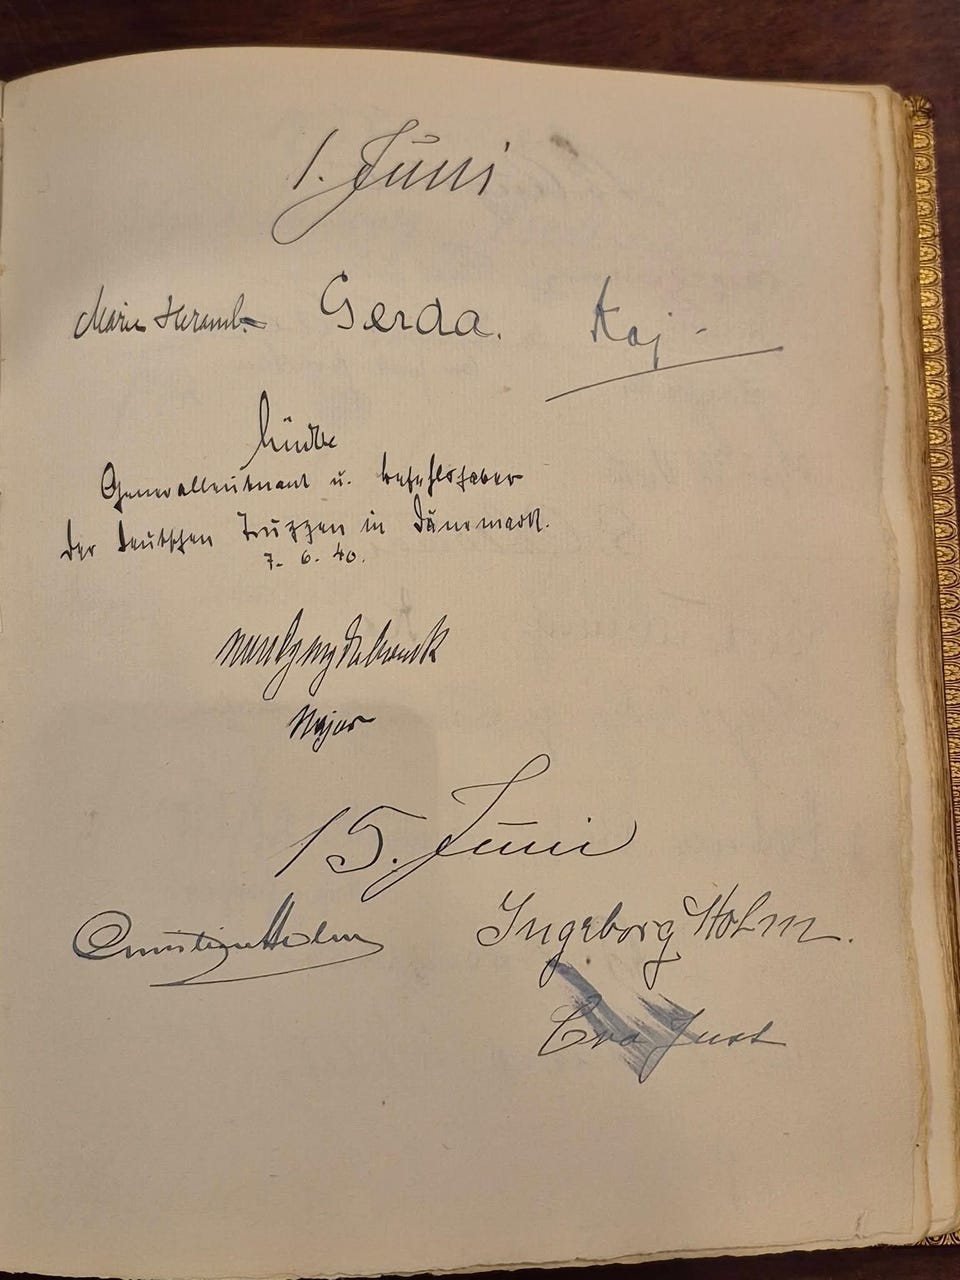 1. Juni
Marie Gerda. Kaj
Lüdke
Generalleutnant u. Befehlshaber
der deutschen Truppen in Dänemark.
7. 6. 40.
Major
15. Juni
Christian Holm Ingeborg Holm.
Eva Just